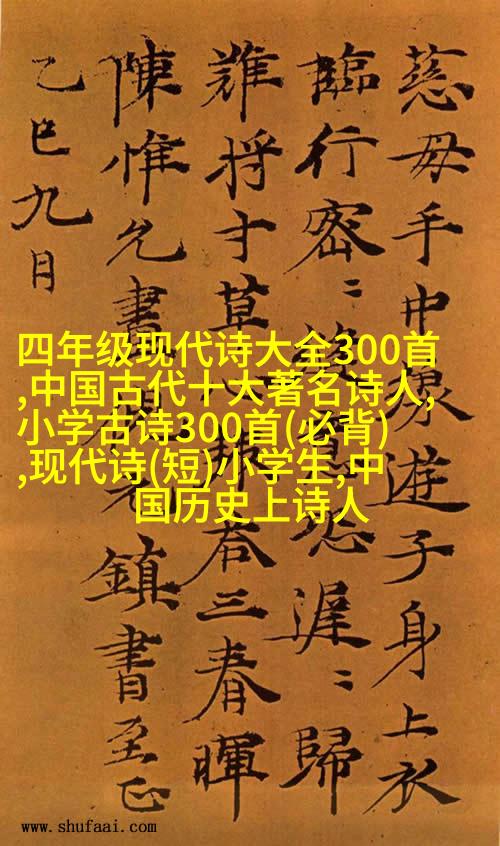 慈母手中線遊子身上衣
臨行密〻縫意恐遲〻歸
難将寸草報答三春暉
陳惟允書鎮書至正
乙巳九月
四年级现代诗大全300首
,中国古代十大著名诗人,
小学古诗300首(必背)
,现代诗(短)小学生,中
国历史上诗人
www.shufaai.com